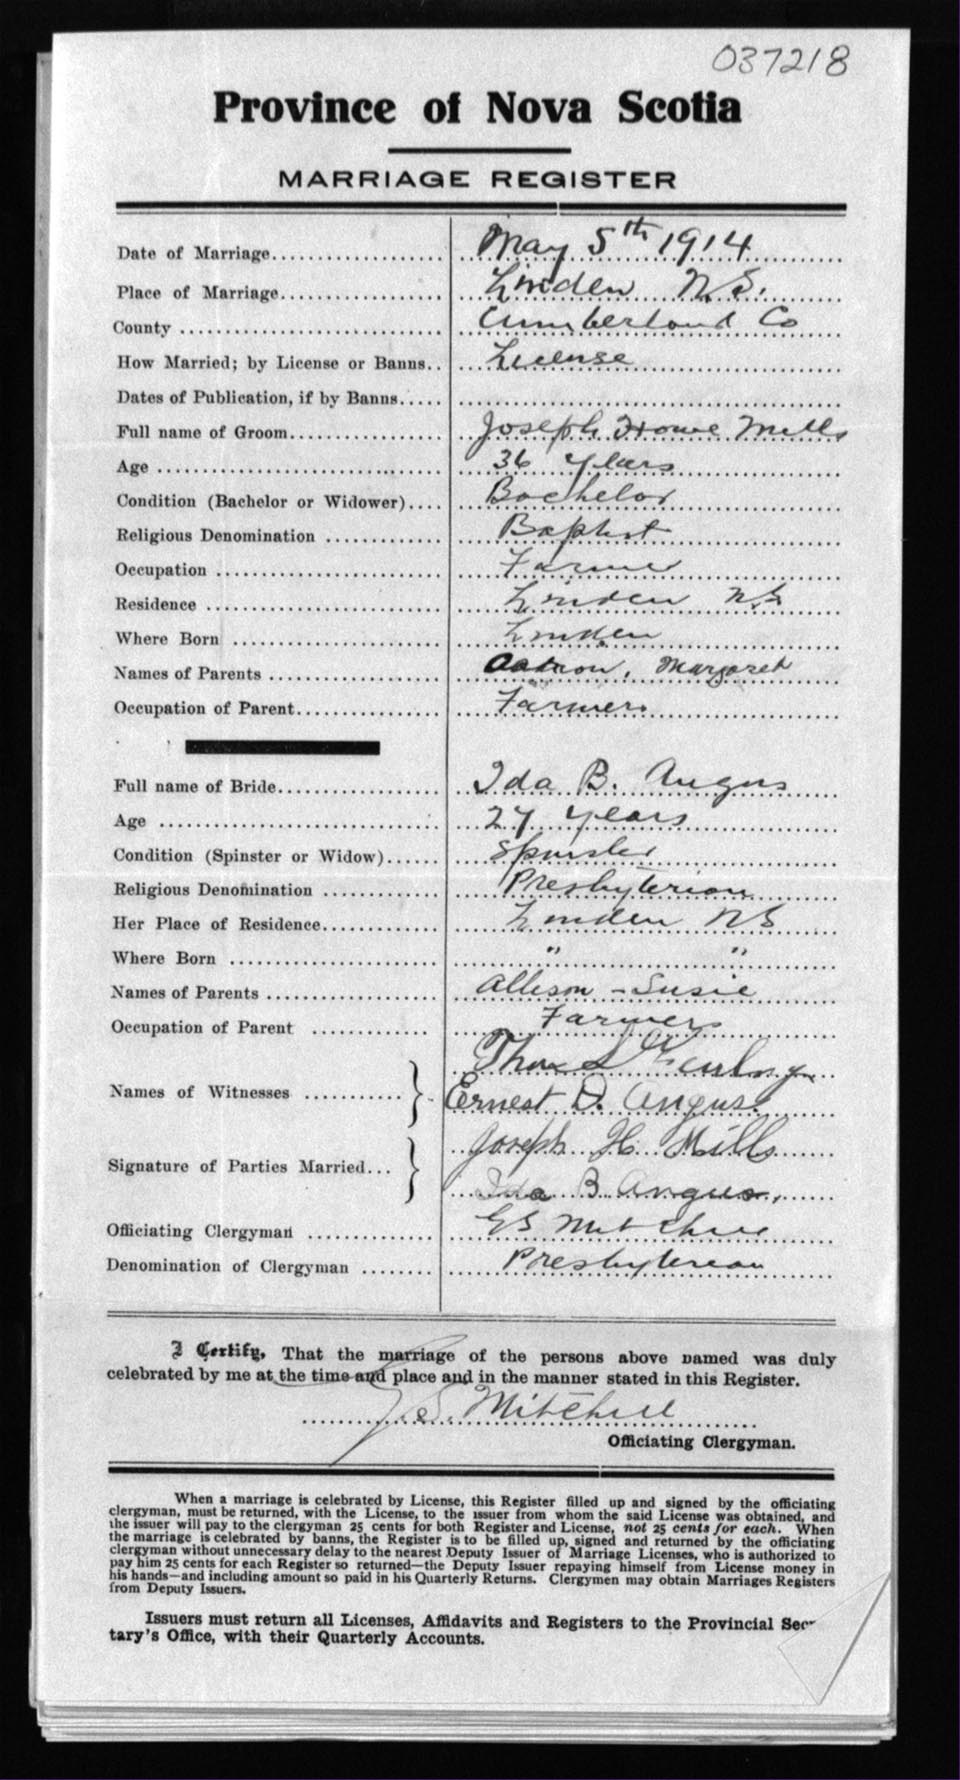 037218
Province of Nova Scotia
MARRIAGE REGISTER
Date of Marriage.................... May 5th 1914
Place of Marriage.................... Linden N.S.
County.................... Cumberland Co
How Married; by License or Banns.. License
Dates of Publication, if by Banns.....
Full name of Groom.................... Joseph Howe Mills
Age.................... 36 years
Condition (Bachelor or Widower).... Bachelor
Religious Denomination.............. Baptist
Occupation.................... Farmer
Residence.................... Linden N.S.
Where Born.................... Linden
Names of Parents.................... Margaret
Occupation of Parent................. Farmer.
Full name of Bride................... Ida B. Angus
Age.................... 27 years
Condition (Spinster or Widow)...... Spinster
Religious Denomination.............. Presbyterian
Her Place of Residence.............. Linden NS
Where Born.................... " "
Names of Parents.................... Allison - Susie
Occupation of Parent................ Farmer
Thos
Names of Witnesses........... } Ernest D. Angus.
Joseph H. Mills
Signature of Parties Married... }
Ida B Angus,
Officiating Clergyman.............. Mitchell
Denomination of Clergyman ........ Presbyterian
I Certify, That the marriage of the persons above named was duly
celebrated by me at the time and place and in the manner stated in this Register.
S. Mitchell
Officiating Clergyman.
When a marriage is celebrated by License, this Register filled up and signed by the officiating
clergyman, must be returned, with the License, to the issuer from whom the said License was obtained, and
the issuer will pay to the clergyman 25 cents for both Register and License, not 25 cents for each. When
the marriage is celebrated by banns, the Register is to be filled up, signed and returned by the officiating
clergyman without unnecessary delay to the nearest Deputy Issuer of Marriage Licenses, who is authorized to
pay him 25 cents for each Register so returned—the Deputy Issuer repaying himself from License money in
his hands—and including amount so paid in his Quarterly Returns. Clergymen may obtain Marriages Registers
from Deputy Issuers.
Issuers must return all Licenses, Affidavits and Registers to the Provincial Sec
tary's Office, with their Quarterly Accounts.